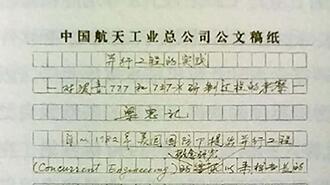 中国航天工业总公司公文稿纸
并行工程的实践
——对波音777和737-X研制过程的考察
自从1982年美国国防下提出并行工程
概念研究
(Concurrent Engineering)的